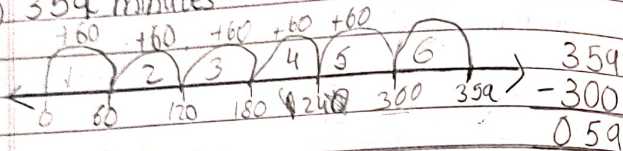 359 minutes
+60 +60 +60 +60 +60
1 2 3 4 5 6
0 60 120 180 240 300 359
359
-300
059